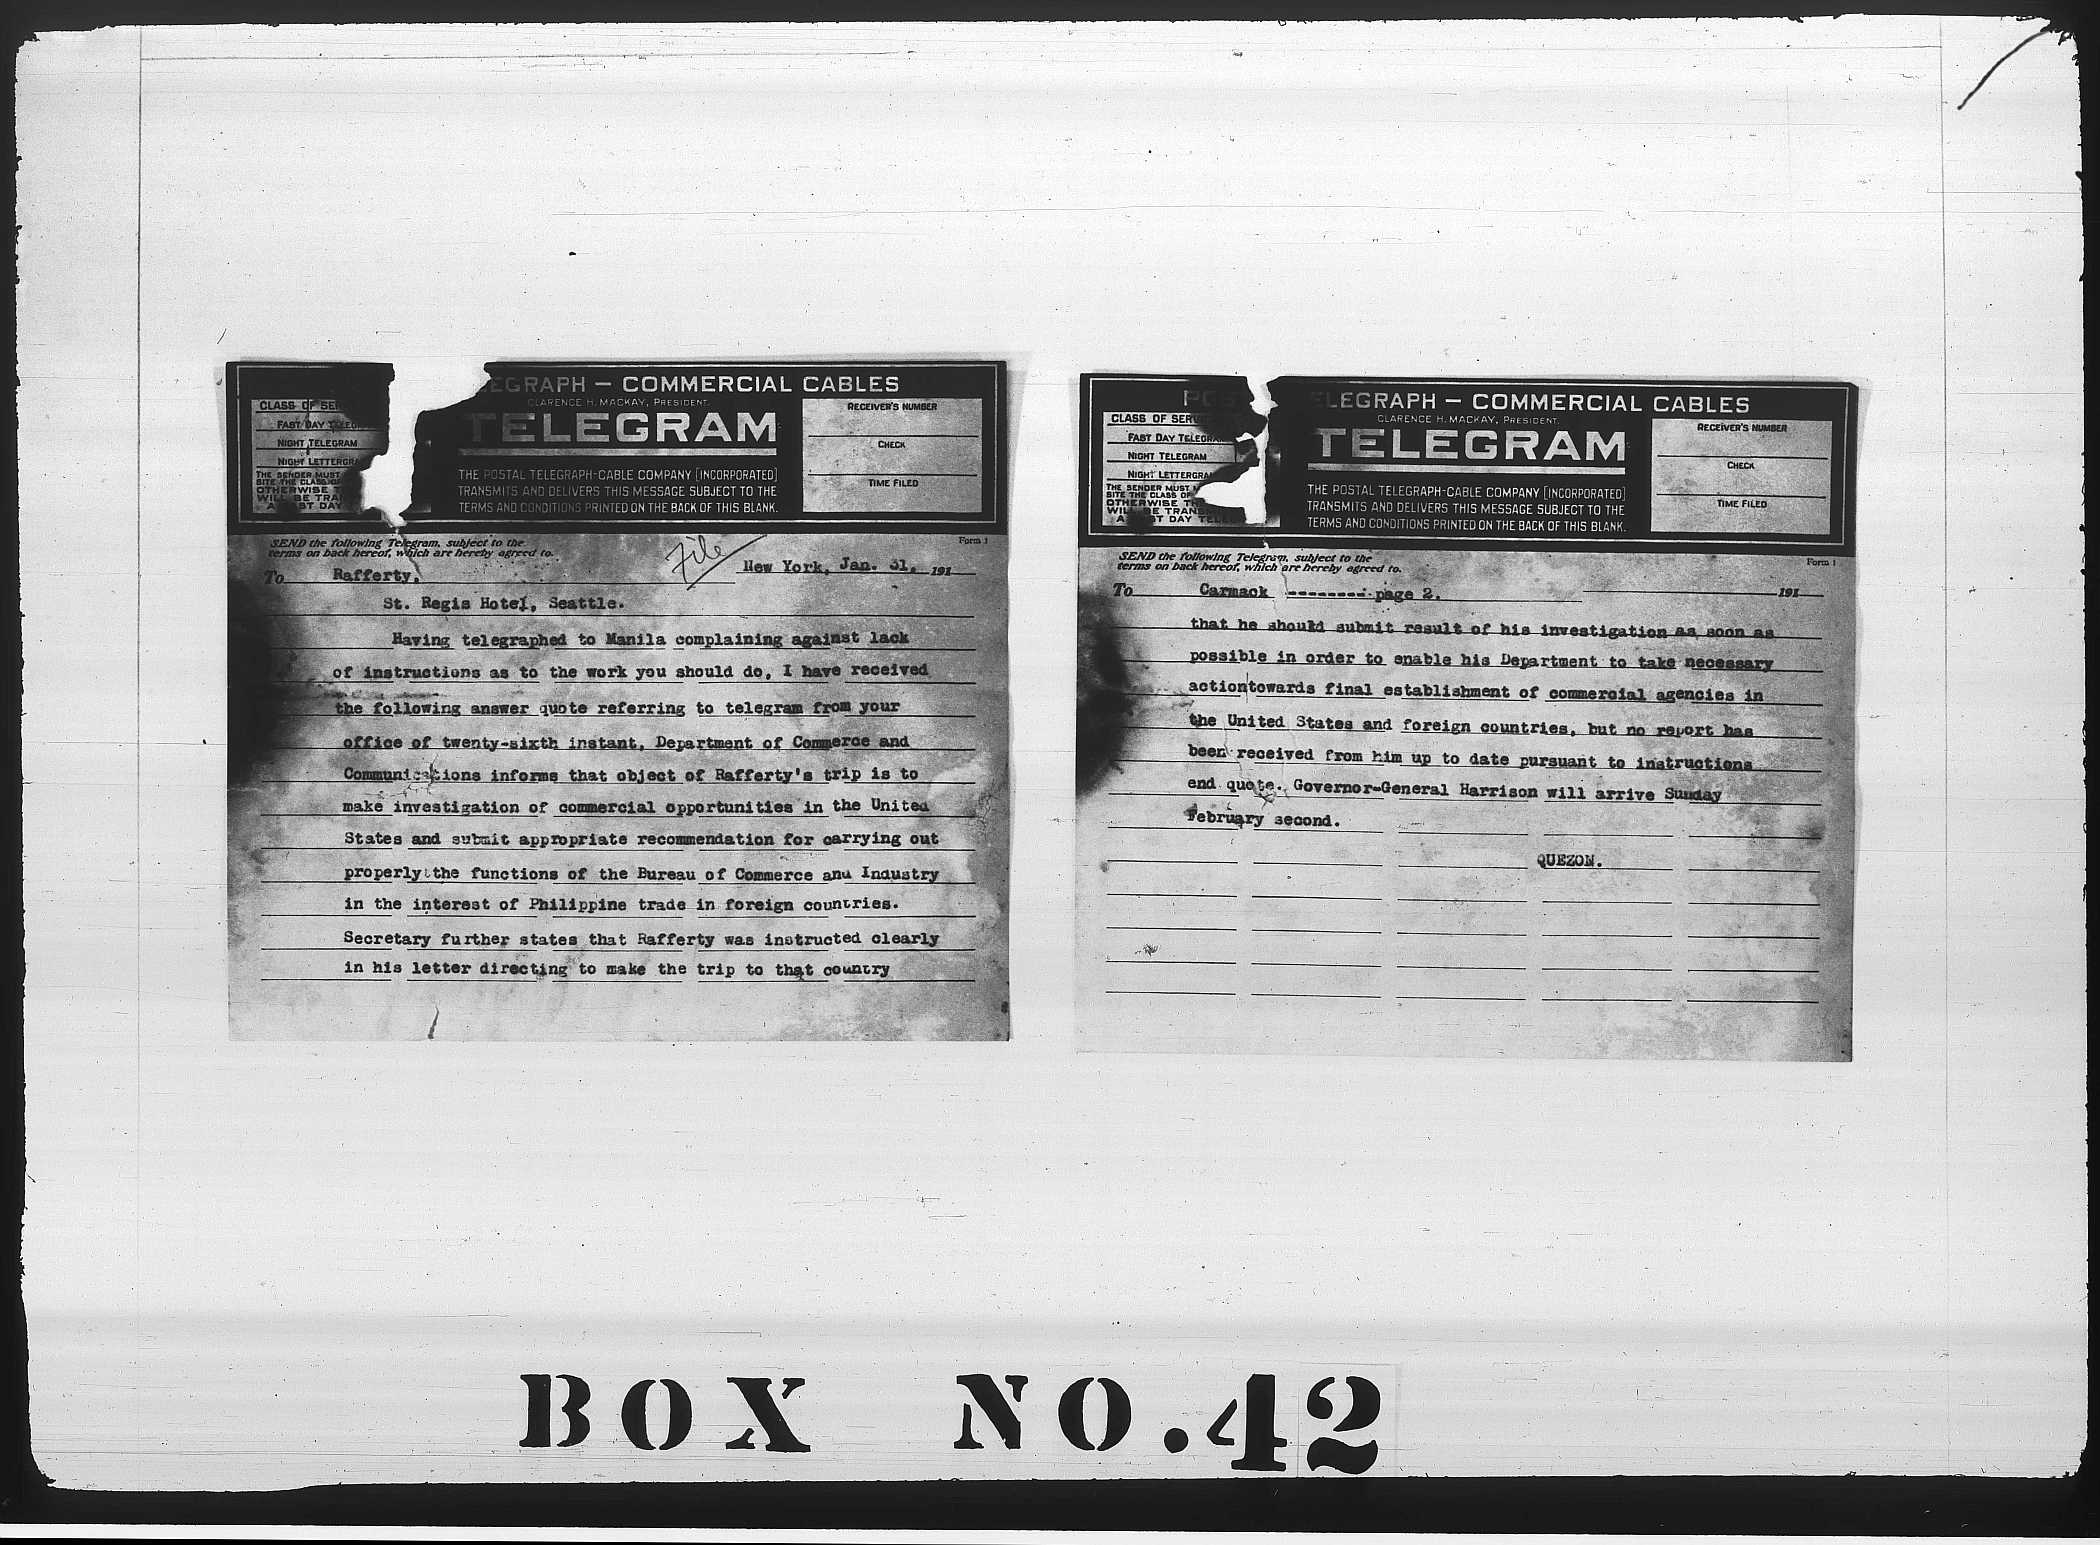 EGRAPH — COMMERCIAL CABLES
CLARENCE H. MACKAY, PRESIDENT.
TELEGRAM
CLASS OF
FAST DAY
NIGHT TELEGRAM
NIGHT LETTERGR
THE SENDER MUST
SITE THE CLASS OF
OTHERWISE
WILL BE TRA
ST DAY
THE POSTAL TELEGRAPH-CABLE COMPANY [INCORPORATED]
TRANSMITS AND DELIVERS THIS MESSAGE SUBJECT TO THE
TERMS AND CONDITIONS PRINTED ON THE BACK OF THIS BLANK.
RECEIVER'S NUMBER
CHECK
TIME FILED
SEND the following Telegram, subject to the
terms on back hereof, which are hereby agreed to.
Form 1
File
New York, Jan. 31, 191
To Rafferty,
St. Regis Hotel, Seattle.
Having telegraphed to Manila complaining against lack
of instructions as to the work you should do, I have received
the following answer quote referring to telegram from your
office of twenty-sixth instant, Department of Commerce and
Communications informs that object of Rafferty's trip is to
make investigation of commercial opportunities in the United
States and submit appropriate recommendation for carrying out
properly the functions of the Bureau of Commerce and Industry
in the interest of Philippine trade in foreign countries.
Secretary further states that Rafferty was instructed clearly
in his letter directing to make the trip to that country
LEGRAPH — COMMERCIAL CABLES
CLARENCE H. MACKAY, PRESIDENT.
TELEGRAM
CLASS OF SERV
FAST DAY TELEGRA
NIGHT TELEGRAM
NIGHT LETTERGRA
THE SENDER MUST
SITE THE CLASS OF
OTHERWISE TH
WILL BE TRAN
DAY TELE
THE POSTAL TELEGRAPH-CABLE COMPANY [INCORPORATED]
TRANSMITS AND DELIVERS THIS MESSAGE SUBJECT TO THE
TERMS AND CONDITIONS PRINTED ON THE BACK OF THIS BLANK.
RECEIVER'S NUMBER
CHECK
TIME FILED
SEND the following Telegram, subject to the
terms on back hereof, which are hereby agreed to.
Form 1
To Carmack --------- page 2. 191
that he should submit result of his investigation as soon as
possible in order to enable his Department to take necessary
action towards final establishment of commercial agencies in
the United States and foreign countries, but no report has
been received from him up to date pursuant to instructions
end quote. Governor-General Harrison will arrive Sunday
February second.
QUEZON.
BOX NO. 42